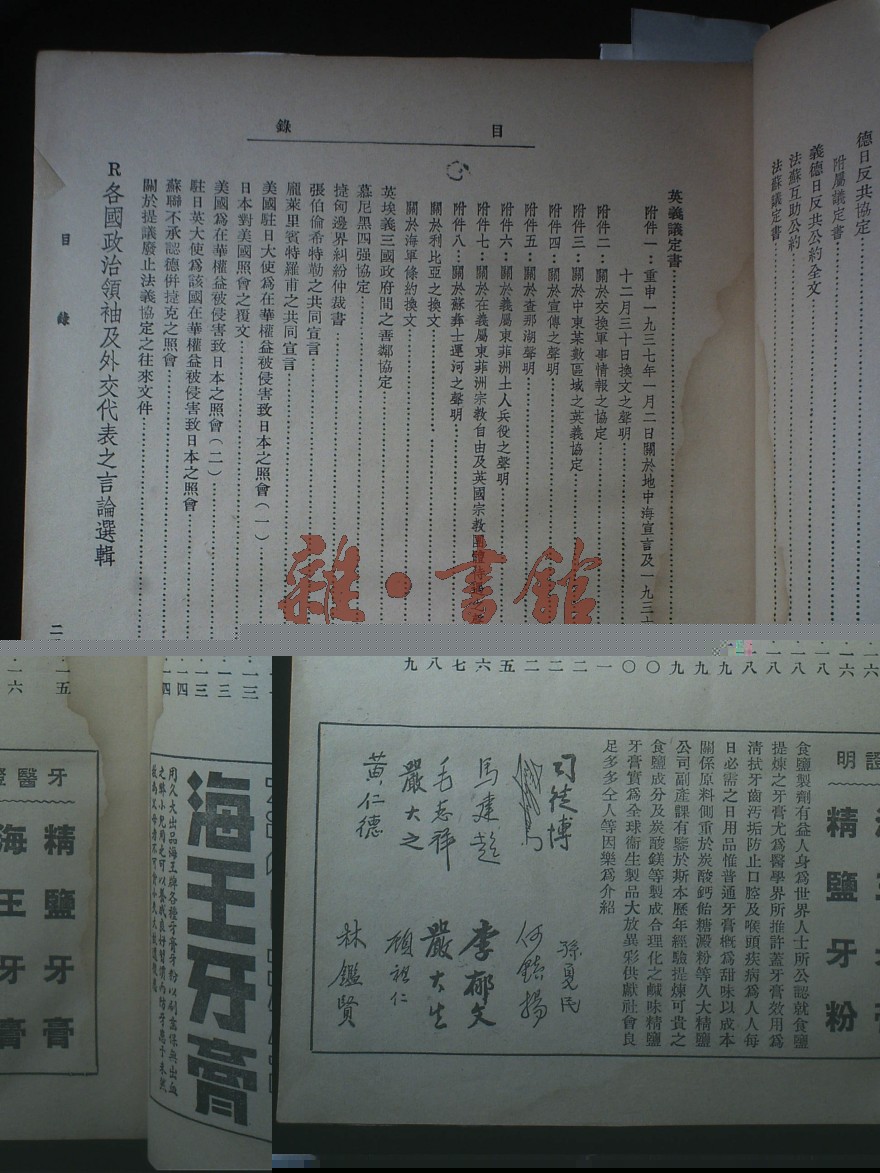 目錄
德日反共協定
附屬議定書
義德日反共公約全文
法蘇互助公約
法蘇議定書
英義議定書
附件一：重申一九三七年一月二日關於地中海宣言及一九三
十二月三十日換文之聲明
附件二：關於交換軍事情報之協定
附件三：關於中東某數區域之英義協定
附件四：關於宣傳之聲明
附件五：關於查那湖聲明
附件六：關於義屬東菲洲土人兵役之聲明
附件七：關於在義屬東菲洲宗教自由及英國宗教團體
附件八：關於蘇彝士運河之聲明
關於利比亞之換文
關於海軍條約換文
英埃義三國政府間之善鄰協定
慕尼黑四強協定
捷匈邊界糾紛仲裁書
張伯倫希特勒之共同宣言
龐萊里賓特羅甫之共同宣言
美國駐日大使爲在華權益被侵害致日本之照會（一）
日本對美國照會之覆文
美國爲在華權益被侵害致日本之照會（二）
駐日英大使爲該國在華權益被侵害致日本之照會
蘇聯不承認德併捷克之照會
關於提議廢止法義協定之往來文件
R各國政治領袖及外交代表之言論選輯
目錄
雜·書館
明
精鹽牙粉
食鹽製劑有益人身爲世界人士所公認就食鹽
提煉之牙膏尤爲醫學界所推許蓋牙膏效用爲
清拭牙齒汚垢防止口腔及喉頭疾病爲人人每
日必需之日用品惟普通牙膏概爲甜味以成本
關係原料側重於炭酸鈣飴糖澱粉等久大精鹽
公司副產課有鑒於斯本歷年經驗提煉可貴之
食鹽成分及炭酸鎂等製成合理化之鹹味精鹽
牙膏實爲全球衞生製品大放異彩供獻社會良
足多多仝人等因樂爲介紹
司徒博
孫夏民
何鎮揚
馬建超
李郁文
毛志祥
嚴大生
嚴大之
顧祖仁
黃仁德
林鑑賢
海王牙膏
用久大出品海王牌各種牙膏牙粉
牙醫證
精鹽牙膏
海王牙膏